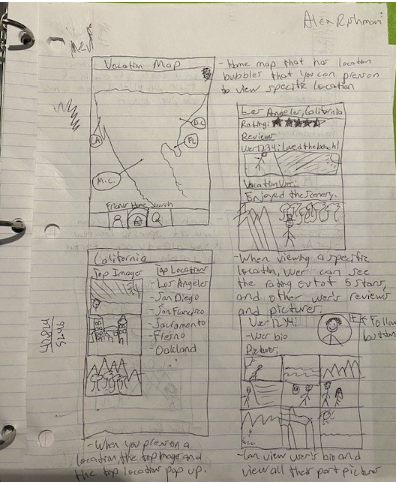 Alex Rishmani
Vacation Map
- Home map that has location
bubbles that you can press on
to view specific location
LA
D.C
FL
M.C
Friends Home Search
Los Angeles, California
Rating: ★★★★★
Reviews
User1234: Loved the beach!
VacationUser:
Enjoyed the scenery.
- When viewing a specific
location, user can see
the rating out of 5 stars,
and other user's reviews
and pictures.
California
Top Images
Top Locations
- Los Angeles
- San Diego
- San Francisco
- Sacramento
- Fresno
- Oakland
- When you press on a
location, the top images and
the top location pop up.
User1234:
- User bio
Pictures:
Follow
button
- Can view user's bio and
view all their past pictures